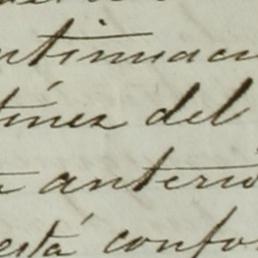 ntinuaci
tínez del
anterio
está confo